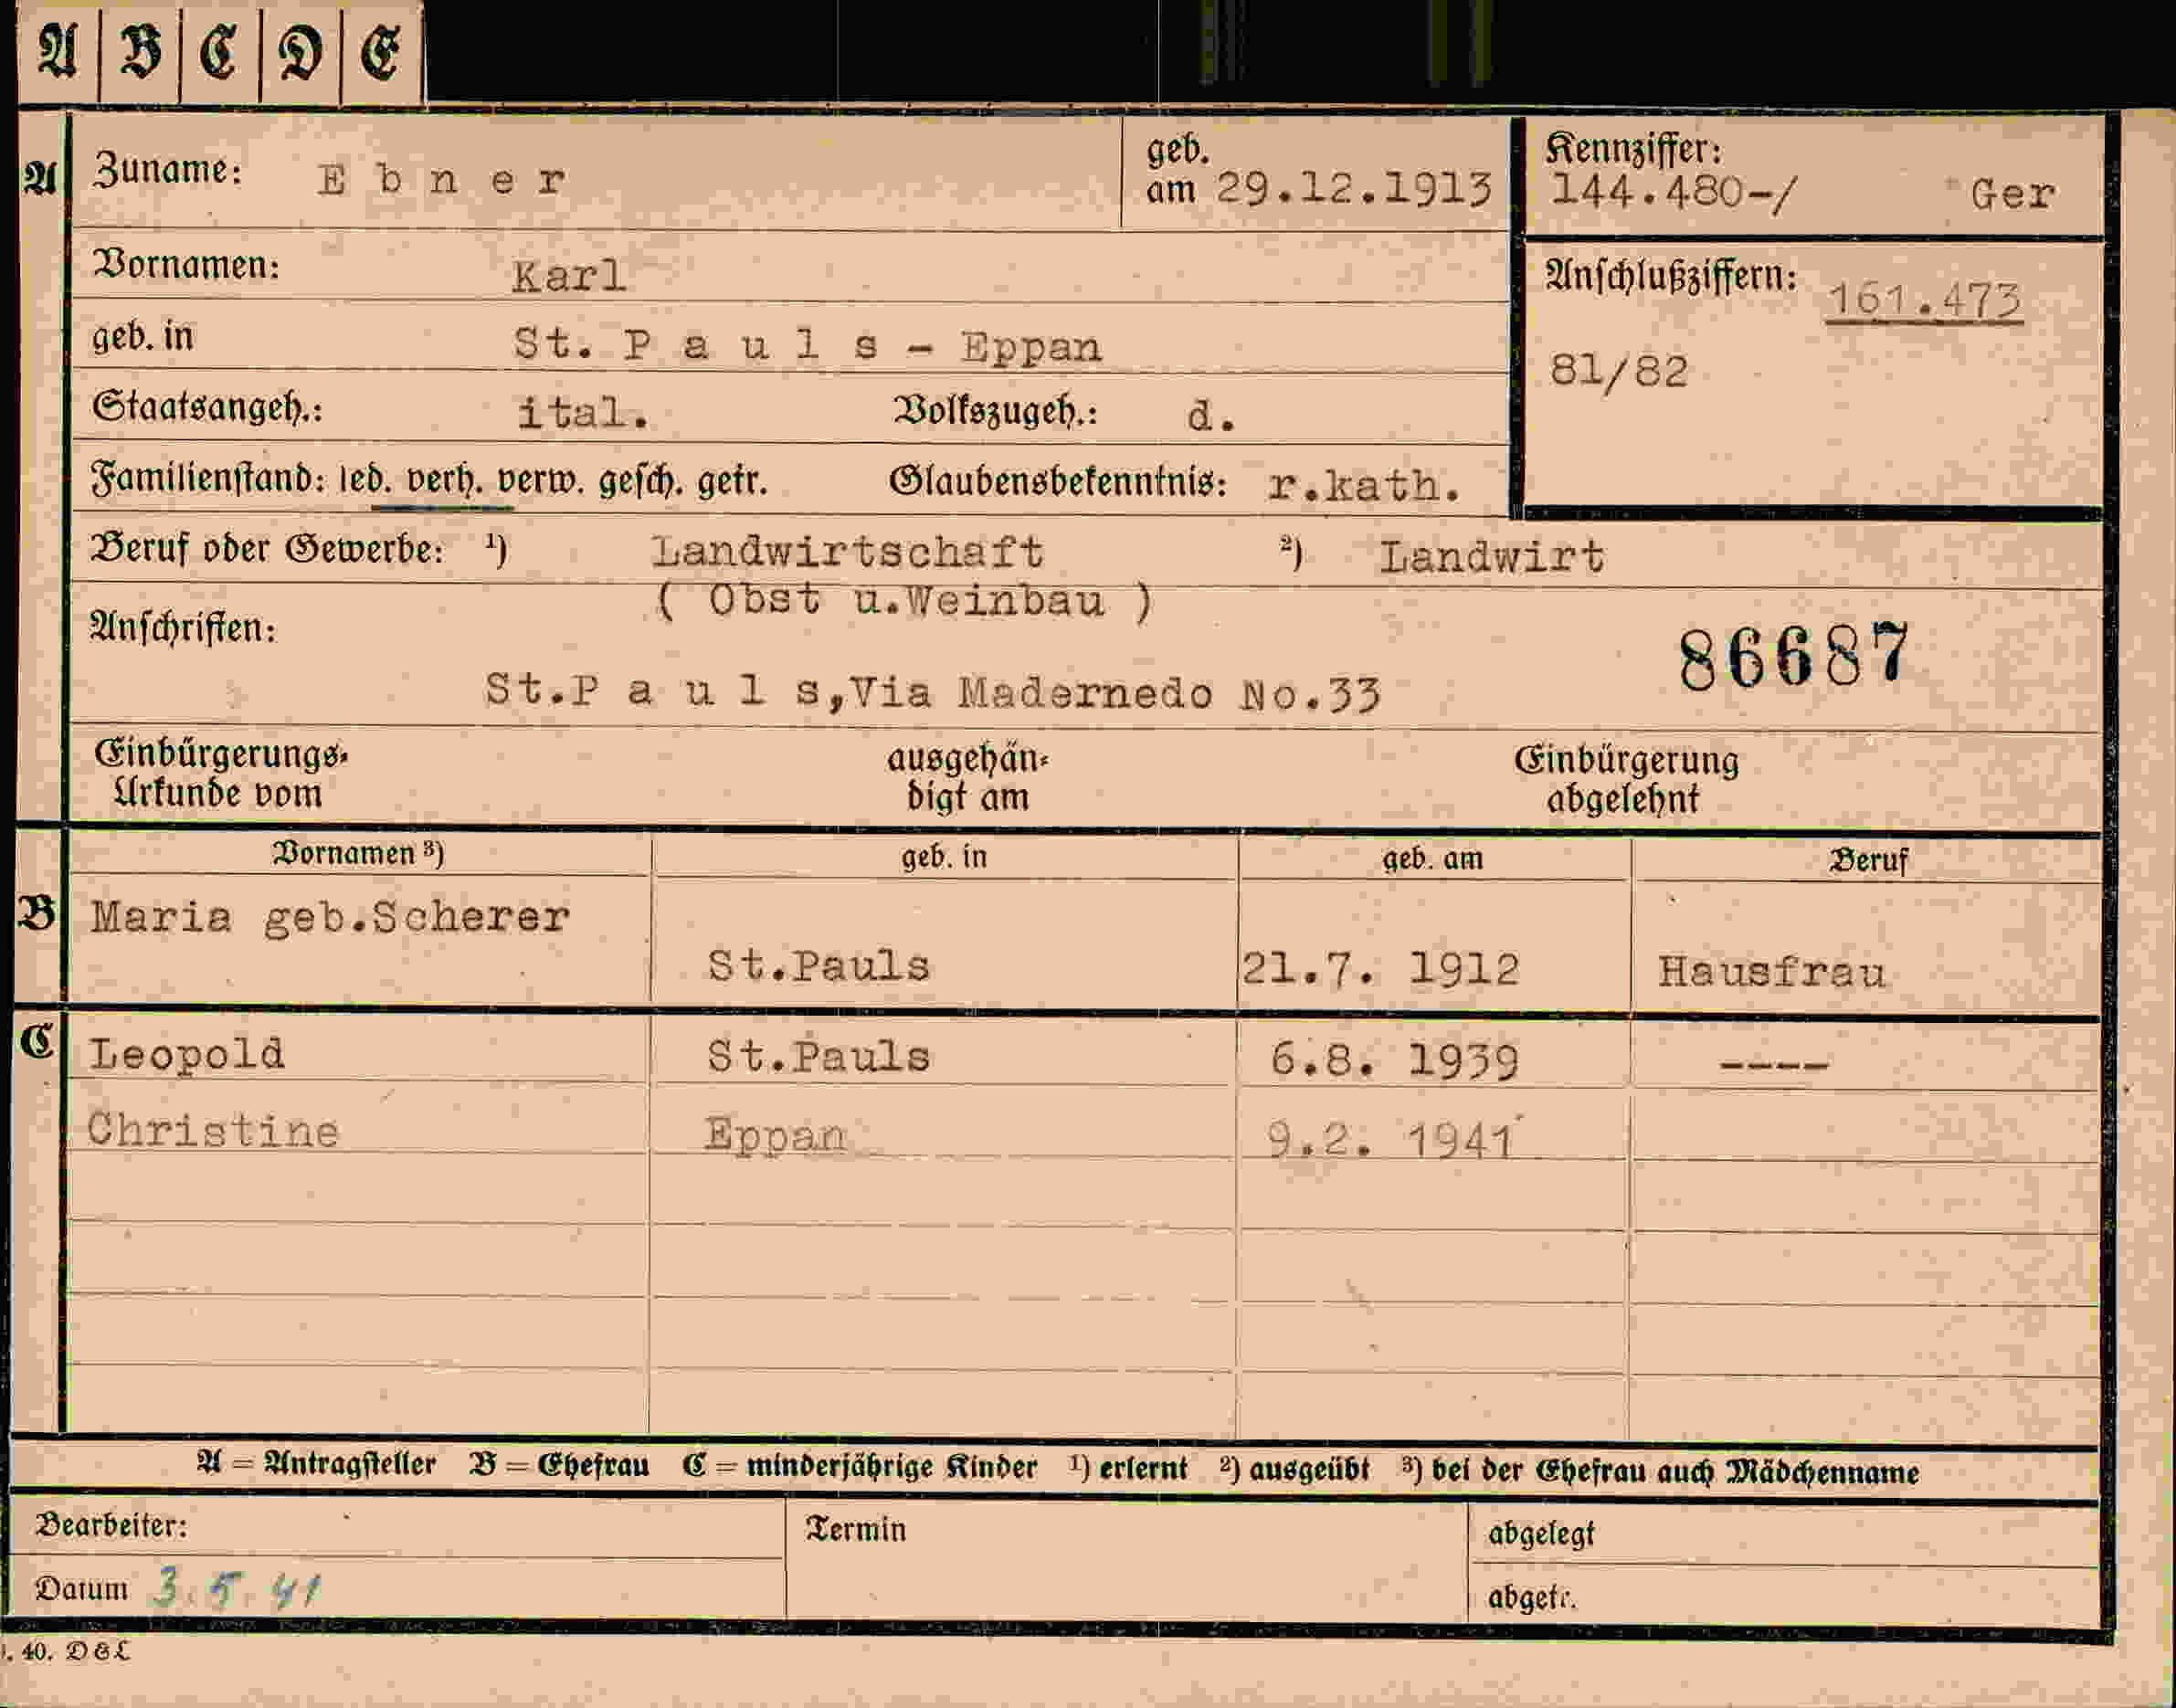 A B C D E
A Zuname: E b n e r geb. am 29.12.1913 Kennziffer: 144.480-/ Ger
Vornamen: Karl
Anschlußziffern: 161.473
geb. in St. P a u l s - Eppan
81/82
Staatsangeh.: ital. Volkszugeh.: d.
Familienstand: led. verh. verw. gesch. getr. Glaubensbekenntnis: r.kath.
Beruf oder Gewerbe: ¹) Landwirtschaft ²) Landwirt
( Obst u.Weinbau )
Anschriften:
86687
St.P a u l s,Via Madernedo No.33
Einbürgerungs- ausgehän- Einbürgerung
Urkunde vom digt am abgelehnt
Vornamen ³) geb. in geb. am Beruf
B Maria geb.Scherer
St.Pauls 21.7. 1912 Hausfrau
C Leopold St.Pauls 6.8. 1939 ----
Christine Eppan 9.2. 1941
A = Antragsteller B = Ehefrau C = minderjährige Kinder ¹) erlernt ²) ausgeübt ³) bei der Ehefrau auch Mädchenname
Bearbeiter: Termin abgelegt
Datum 3.5.41 abgetr.
40. D&L